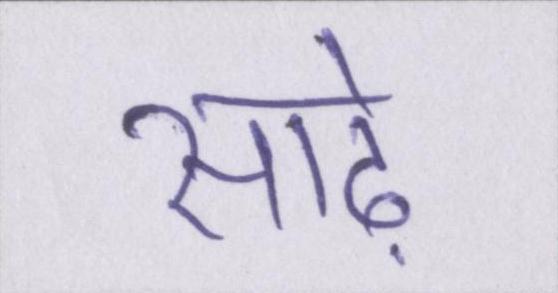 साढ़े